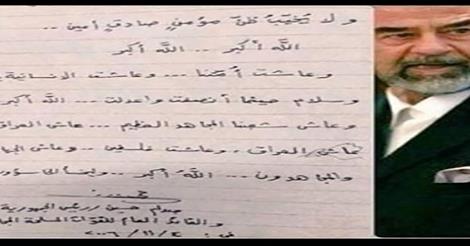 ولا يخيب ظن مؤمن صادق أمين ..
الله أكبر ... الله أكبر
وعاشت أمتنا ... وعاشت الإنسانية
وسلام حيثما أنصفت واعدلت ... الله أكبر
وعاش شعبنا المجاهد العظيم ... عاش العراق
عاش العراق .. وعاشت فلسطين .. وعاش
والمجاهدون ... الله أكبر ..
صدام حسين رئيس الجمهورية
والقائد العام للقوات المسلحة
في: ٢٠٠٦/١١/